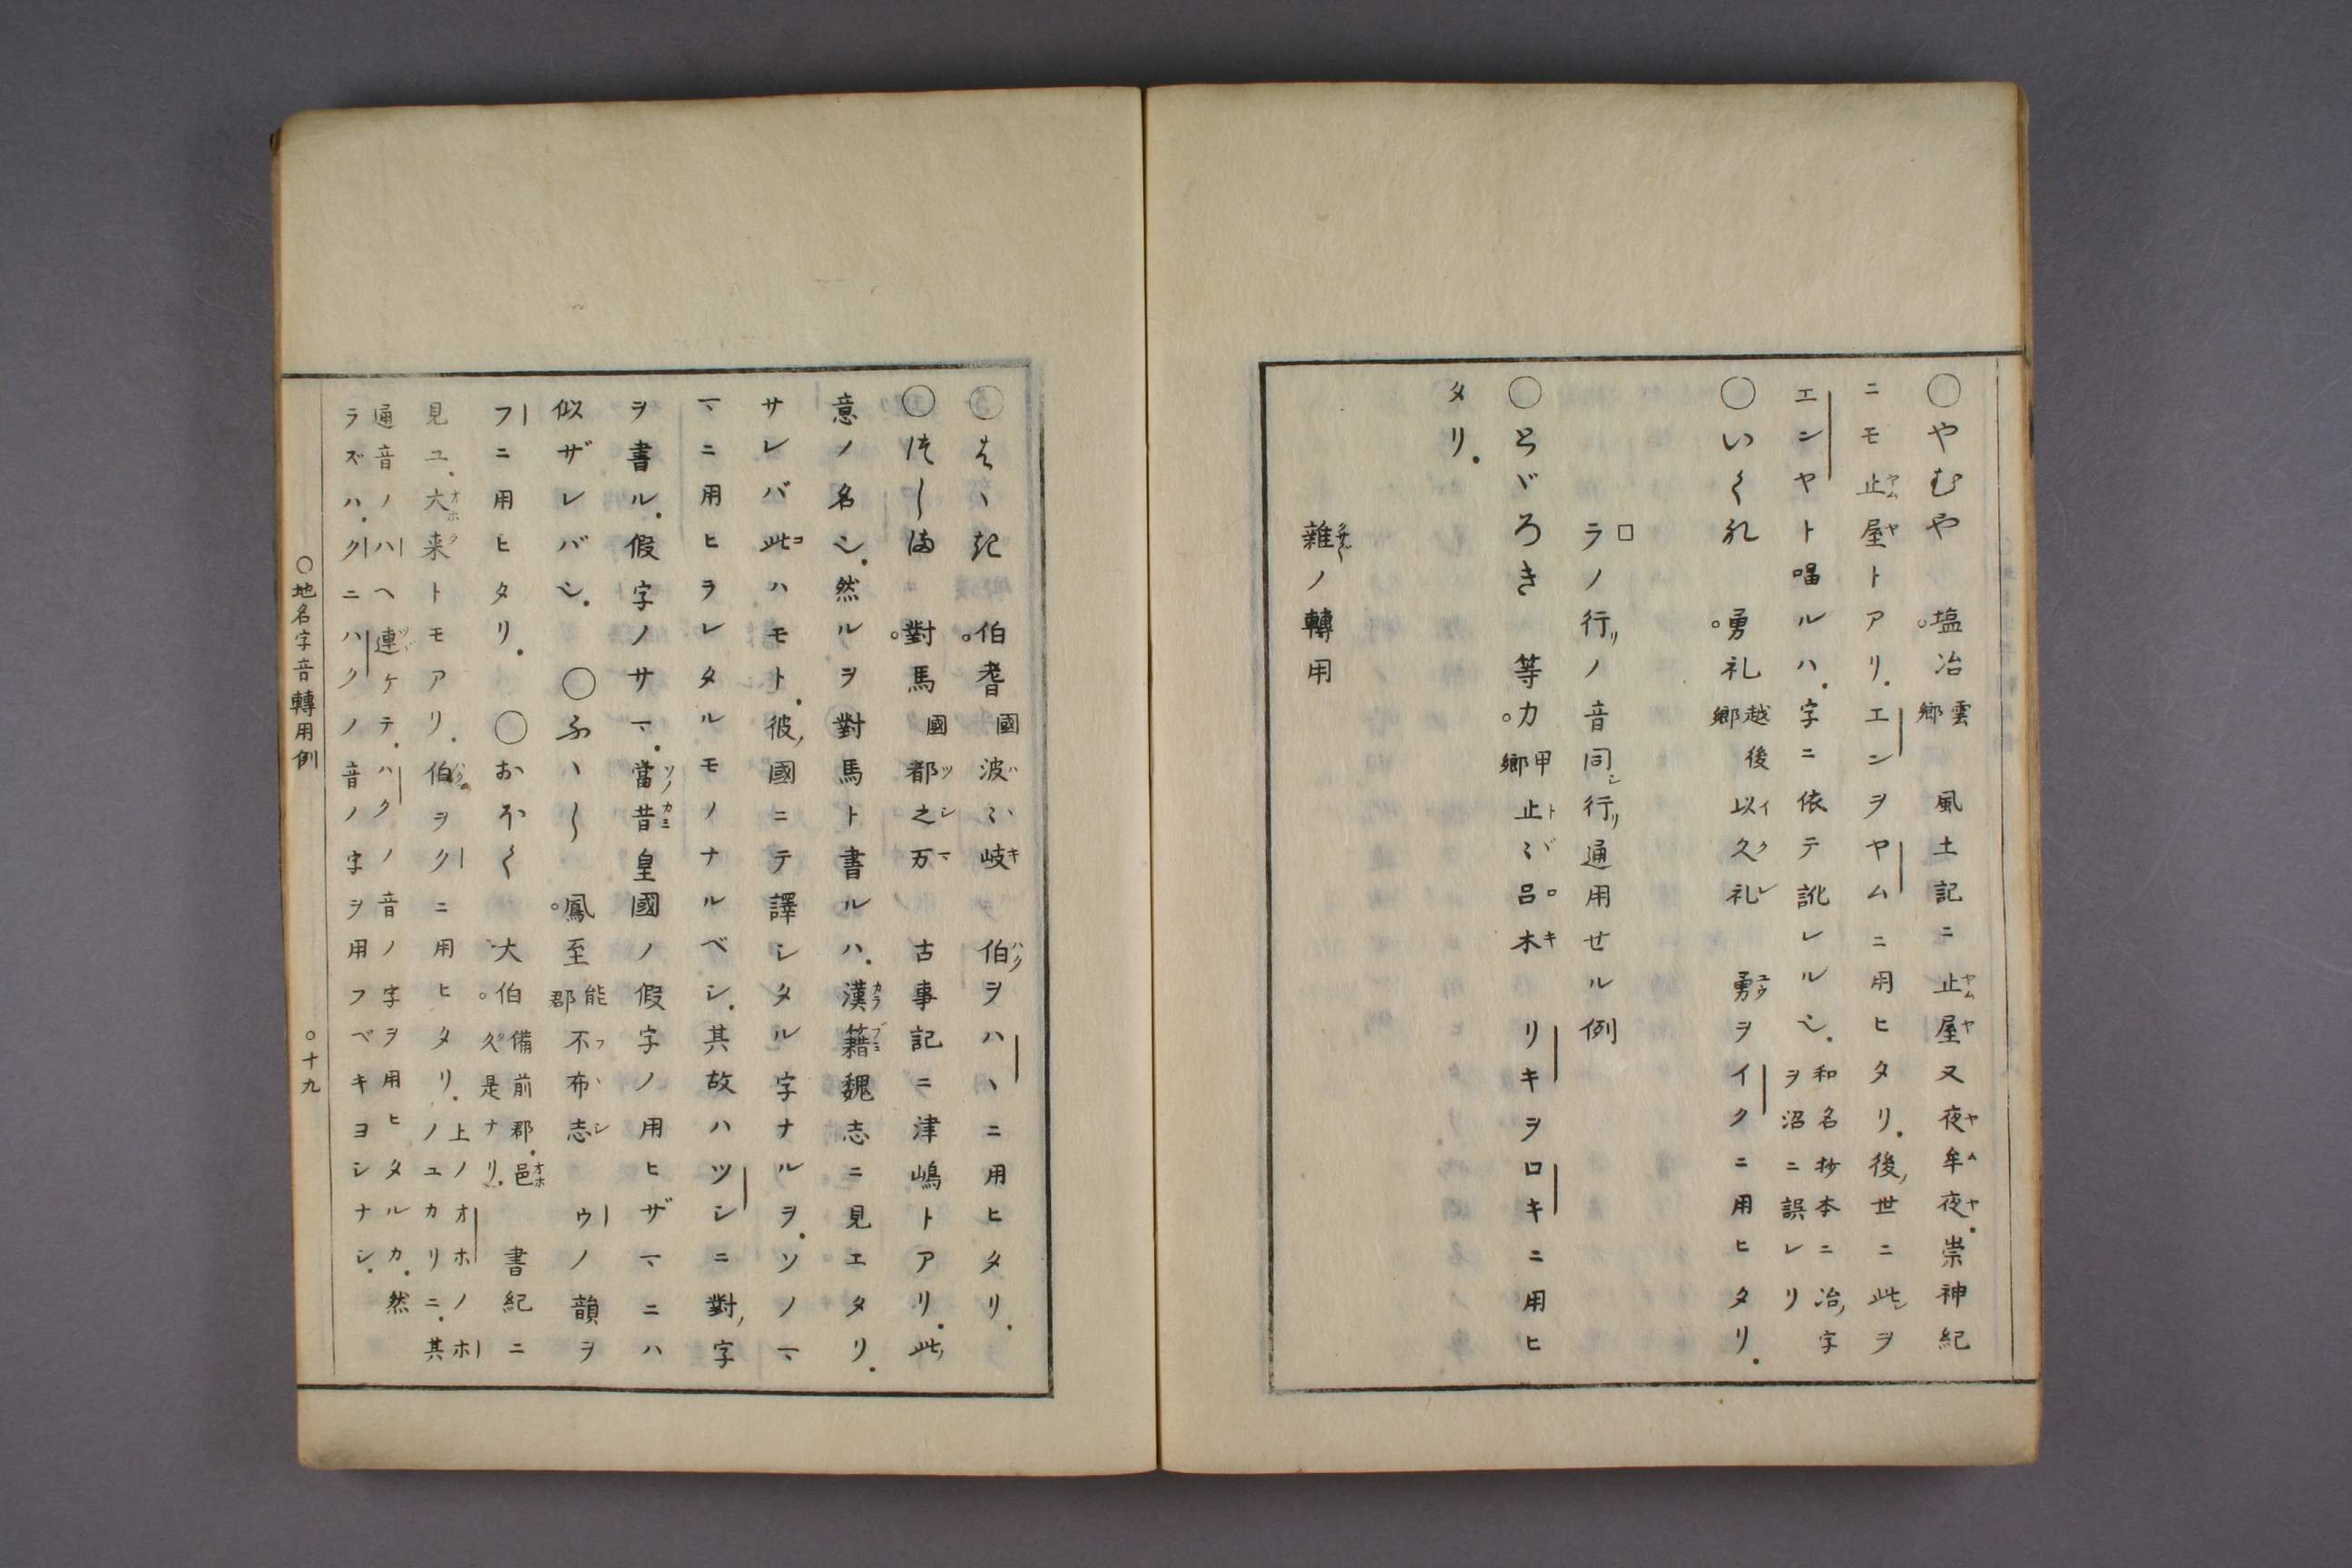 ○やむや　塩冶 雲郷　風土記ニ止屋又夜牟夜.崇神紀
ニモ止屋トアリ.エンヲヤムニ用ヒタリ.後世ニ此ヲ
エンヤト唱ルハ.字ニ依テ訛レルシ.和名抄本ニ冶字
ヲ沼ニ誤レリ
○いくれ　勇礼 越後郷 以久礼　勇ヲイクニ用ヒタリ.
ラノ行ノ音同シ行通用せル例
○とゞろき　等力 甲郷 止〻呂木　リキヲロキニ用ヒ
タリ.
雜ノ轉用
○はゝき　伯耆 國 波〻岐　伯ヲハヽニ用ヒタリ.
○つしま　對馬 國 都之万　古事記ニ津嶋トアリ.此
意ノ名シ.然ルヲ對馬ト書ルハ.漢籍魏志ニ見エタリ.
サレバ此ハモト.彼國ニテ譯シタル字ナルヲ.ソノマ
マニ用ヒラレタルモノナルベシ.其故ハツシニ對字
ヲ書ル.假字ノサマ.當昔皇國ノ假字ノ用ヒザマニハ
似ザレバシ.　○ふゝし　鳳至 能郡 不布志　ウノ韻ヲ
フニ用ヒタリ.　○おほく　大伯 備前郡.邑
久是ナリ.　書紀ニ
見ユ.大来トモアリ.伯ヲクニ用ヒタリ.上ノオホノホ
ノユカリニ.其
通音ノハヘ連ケテ.ハクノ音ノ字ヲ用ヒタルカ.然
ラズハ.クニハクノ音ノ字ヲ用フベキヨシナシ.
○地名字音轉用例　○十九